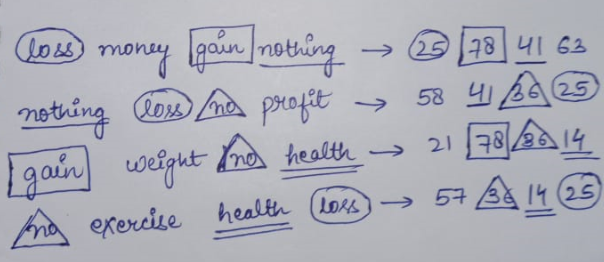 loss money gain nothing → 25 78 41 63
nothing loss no profit → 58 41 36 25
gain weight no health → 21 78 36 14
no exercise health loss → 57 36 14 25